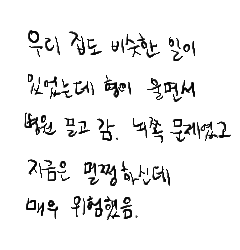 우리 집도 비슷한 일이
있었는데 형이 울면서
병원 끌고 감. 뇌쪽 문제였고
지금은 멀쩡하신데
매우 위험했음.